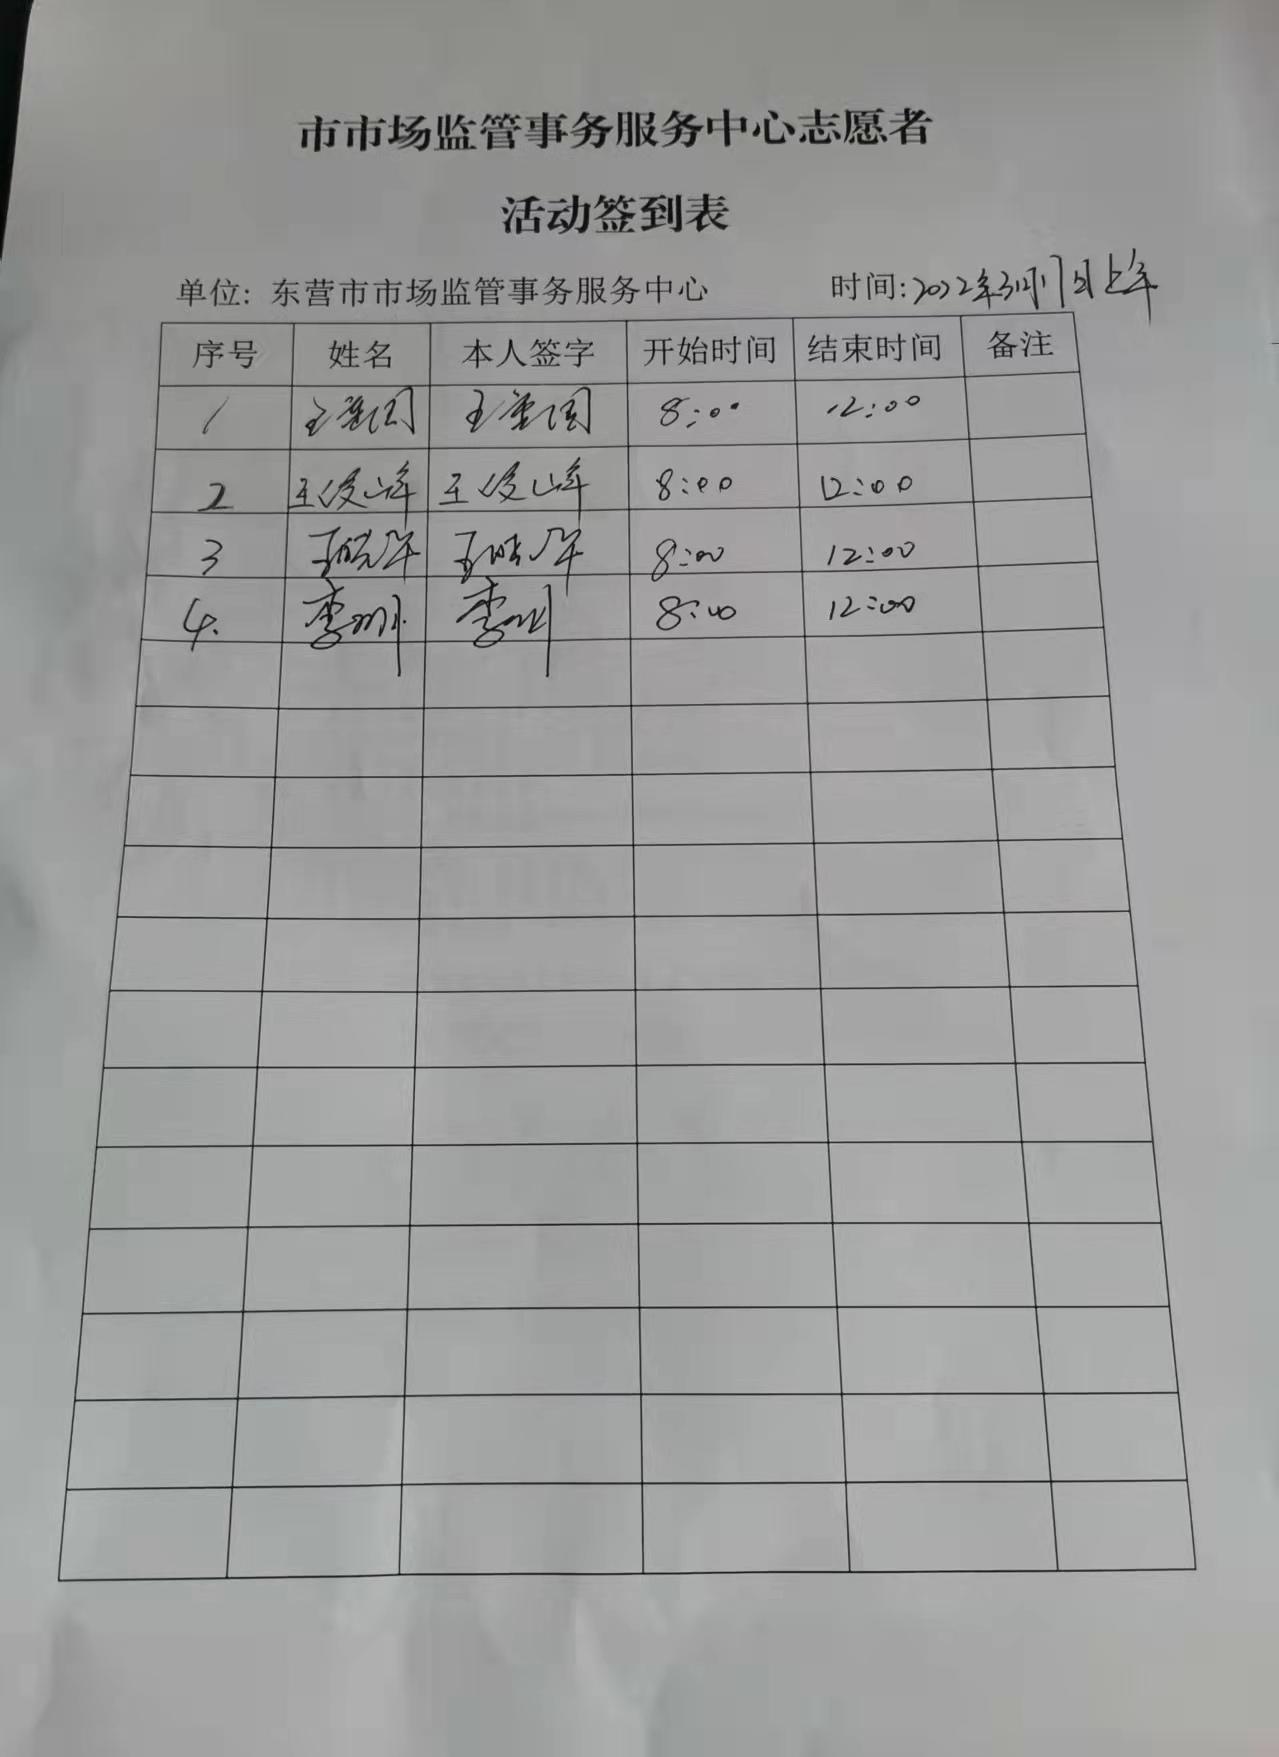 市市场监管事务服务中心志愿者
活动签到表
单位: 东营市市场监管事务服务中心 时间:2022年3月17日上午
序号 姓名 本人签字 开始时间 结束时间 备注
1 王 国 王 国 8:00 12:00
2 王俊峰 王俊峰 8:00 12:00
3 王晓军 王晓军 8:00 12:00
4. 李 李 8:00 12:00